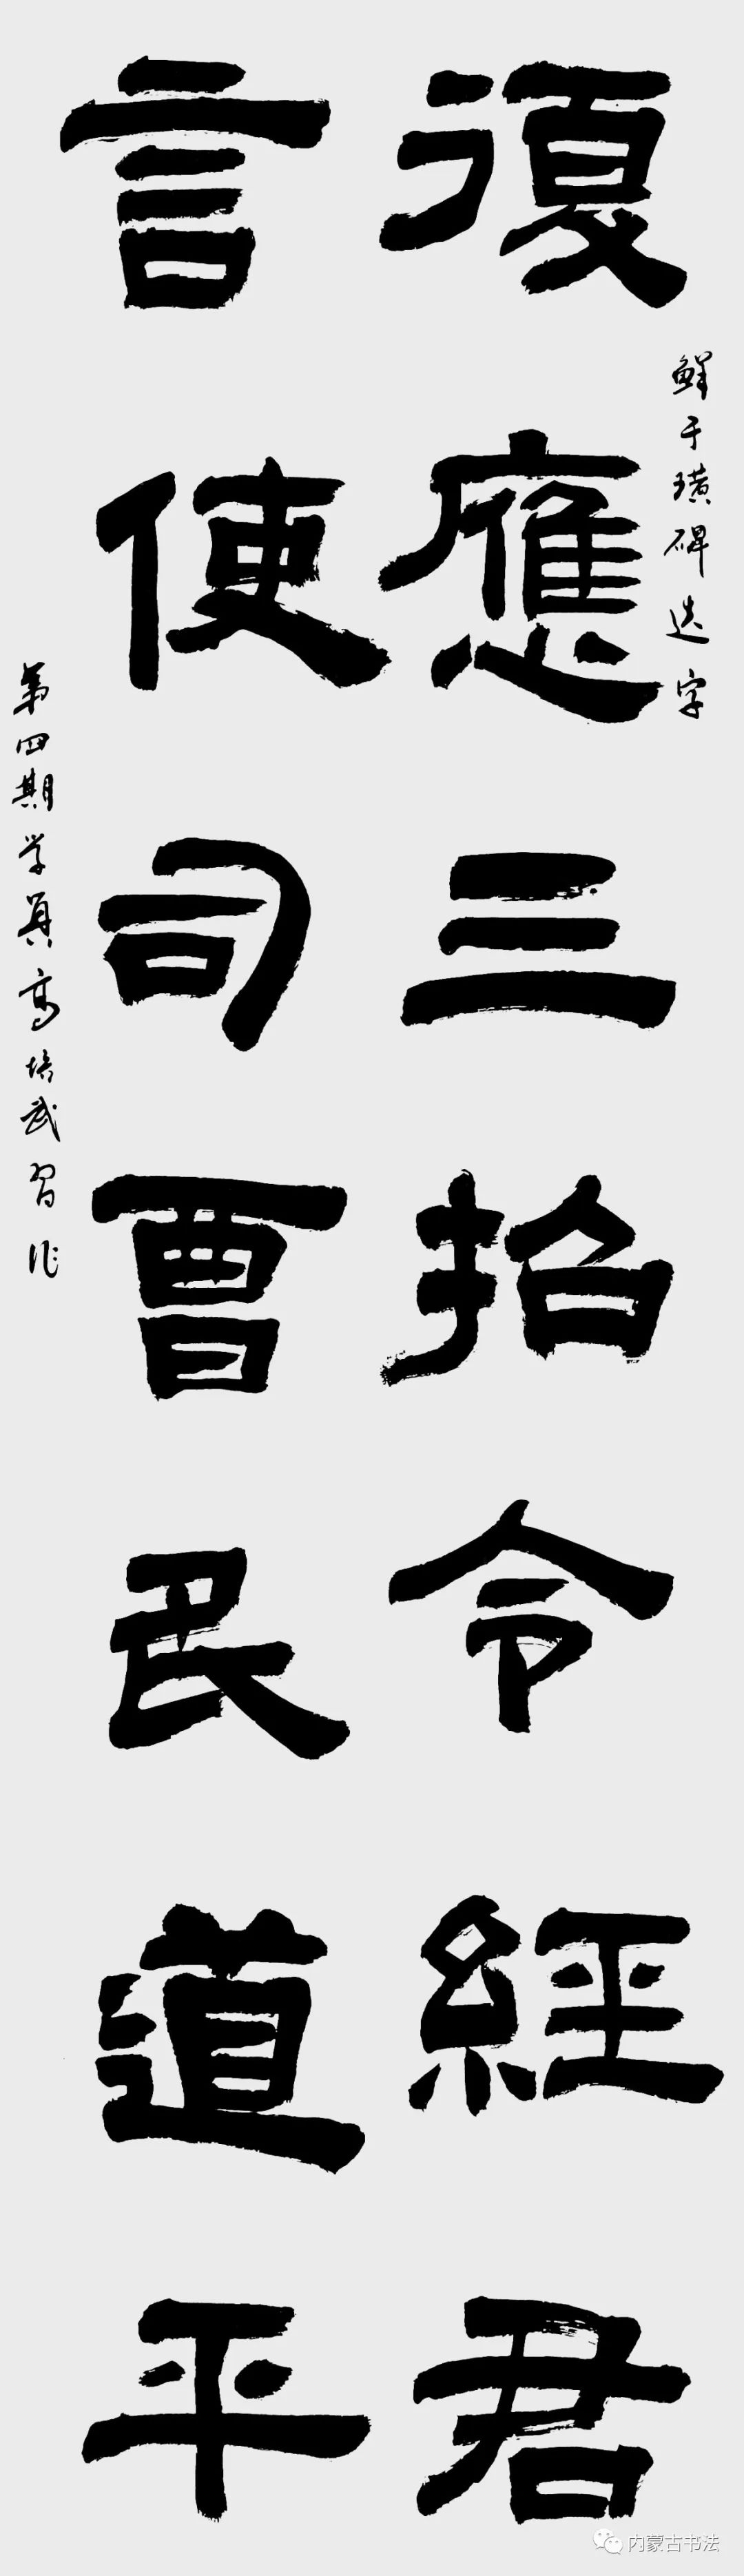 復應三招令經君
鮮于璜碑选字
言使司曹民道平
第四期学員高培武習作
内蒙古书法